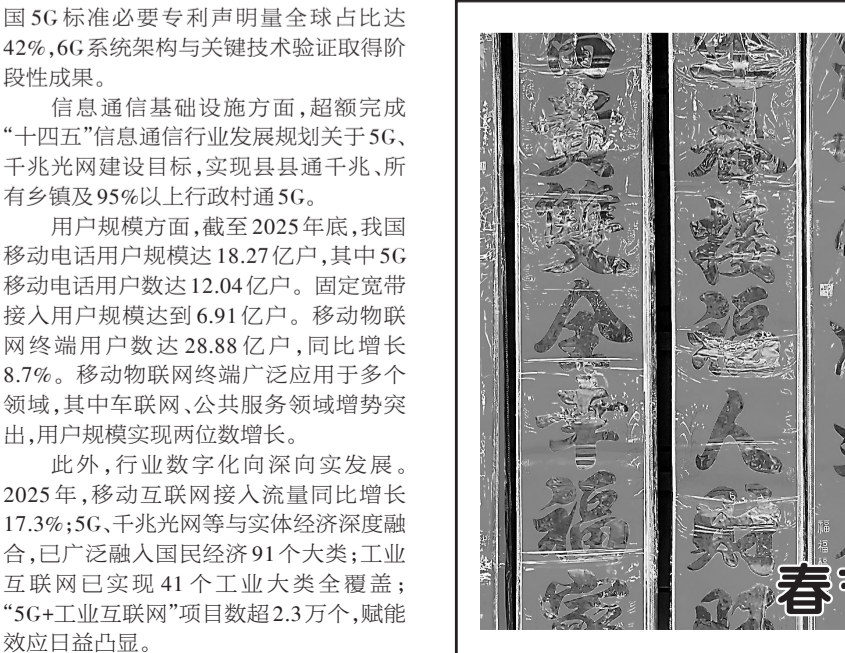 国5G标准必要专利声明量全球占比达
42%,6G系统架构与关键技术验证取得阶
段性成果。
信息通信基础设施方面,超额完成
“十四五”信息通信行业发展规划关于5G、
千兆光网建设目标,实现县县通千兆、所
有乡镇及95%以上行政村通5G。
用户规模方面,截至2025年底,我国
移动电话用户规模达18.27亿户,其中5G
移动电话用户数达12.04亿户。固定宽带
接入用户规模达到6.91亿户。移动物联
网终端用户数达28.88亿户,同比增长
8.7%。移动物联网终端广泛应用于多个
领域,其中车联网、公共服务领域增势突
出,用户规模实现两位数增长。
此外,行业数字化向深向实发展。
2025年,移动互联网接入流量同比增长
17.3%;5G、千兆光网等与实体经济深度融
合,已广泛融入国民经济91个大类;工业
互联网已实现41个工业大类全覆盖;
“5G+工业互联网”项目数超2.3万个,赋能
效应日益凸显。
春